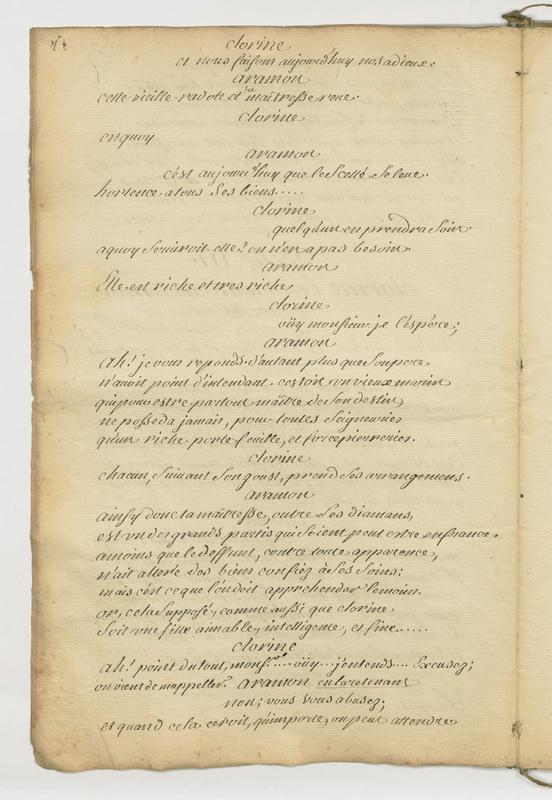 clorine
et nous faisons aujourd'huy nos adieux.
aramon
cette vieille radote et ta maitresse reve.
clorine
enquoy
aramon
c'est aujourd'huy que le Scellé Se leve.
hortence a tous Ses biens.....
clorine
quelqu'un en prendra Soin.
aquoy Serviroit elle? on n'en apas besoin.
aramon
Elle est riche et tres riche
clorine
oüy monsieur je l'éspére;
aramon
ah! je vous reponds d'autant plus que Son pere
n'avoit point d'intendant. c'estoit un vieux marin
qui pour estre partout maitre de Son destin,
ne posseda jamais, pour toutes Seigneuries
qu'un riche porte feuille, et force pierreries.
clorine
chacun, Suivant Son goust, prend Ses arrangemens.
aramon
ainsy donc ta maitresse, outre Ses diamans,
est un des grands partis qui Soient peut estre en france.
amoins que le deffunt, contre toute apparence,
n'ait alteré des biens confiez à Ses Soins;
mais c'est ce que l'on doit apprehender le moins.
or, cela Supposé, comme aussi que clorine
Soit une fille aimable, intelligente, et fine......
clorine
ah! point du tout, monsr.... oüy.... j'entends.... Excusez;
on vient de m'appeller. aramon en la retenant
non; vous vous abusez;
et quand cela seroit, qu'importe, on peut attendre